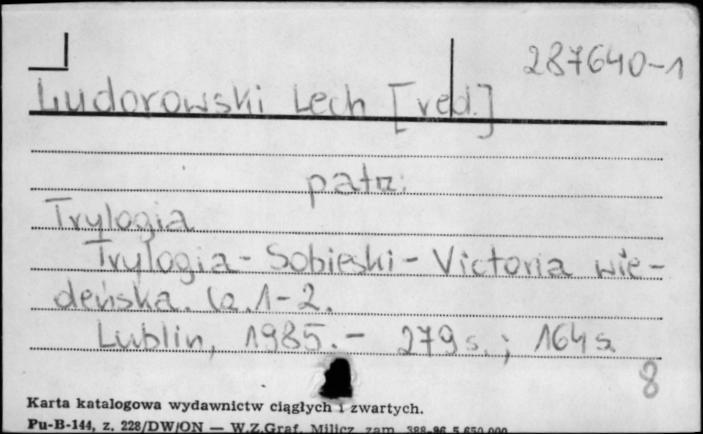 287640-1
Ludorowski Lech [red.]
patrz:
Trylogia
Trylogia - Sobieski - Victoria wie-
deńska. Cz. 1-2.
Lublin, 1985. - 279 s. ; 164 s.
8
Karta katalogowa wydawnictw ciągłych i zwartych.
Pu-B-144, z. 228/DW/ON — W.Z.Graf. Milicz, zam. 388-86 5.650.000